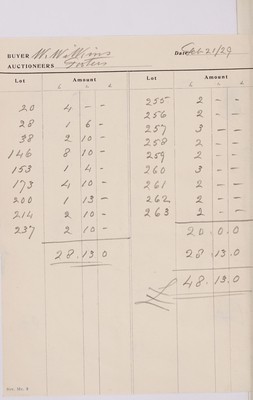 BUYER W. Williams Date Feb 21/29
AUCTIONEERS
Lot Amount
£ s d
20 4 – –
28 1 6 –
38 2 10 –
146 8 10 –
153 1 4 –
173 4 10 –
200 1 13 –
214 2 10 –
237 2 10 –
28.13 0
Lot Amount
£ s d
255 2 – –
256 2 – –
257 3 – –
258 2 – –
259 2 – –
260 3 – –
261 2 – –
262 2 – –
263 2 – –
20.0.0
28.13.0
£ 48.13.0